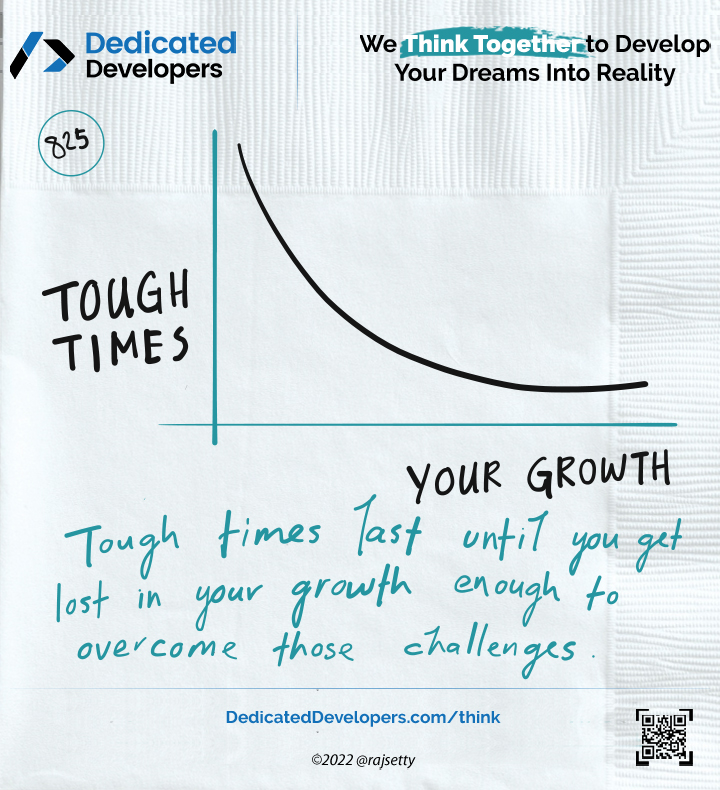 Dedicated
Developers
We Think Together to Develop
Your Dreams Into Reality
825
TOUGH
TIMES
YOUR GROWTH
Tough times last until you get
lost in your growth enough to
overcome those challenges.
DedicatedDevelopers.com/think
©2022 @rajsetty